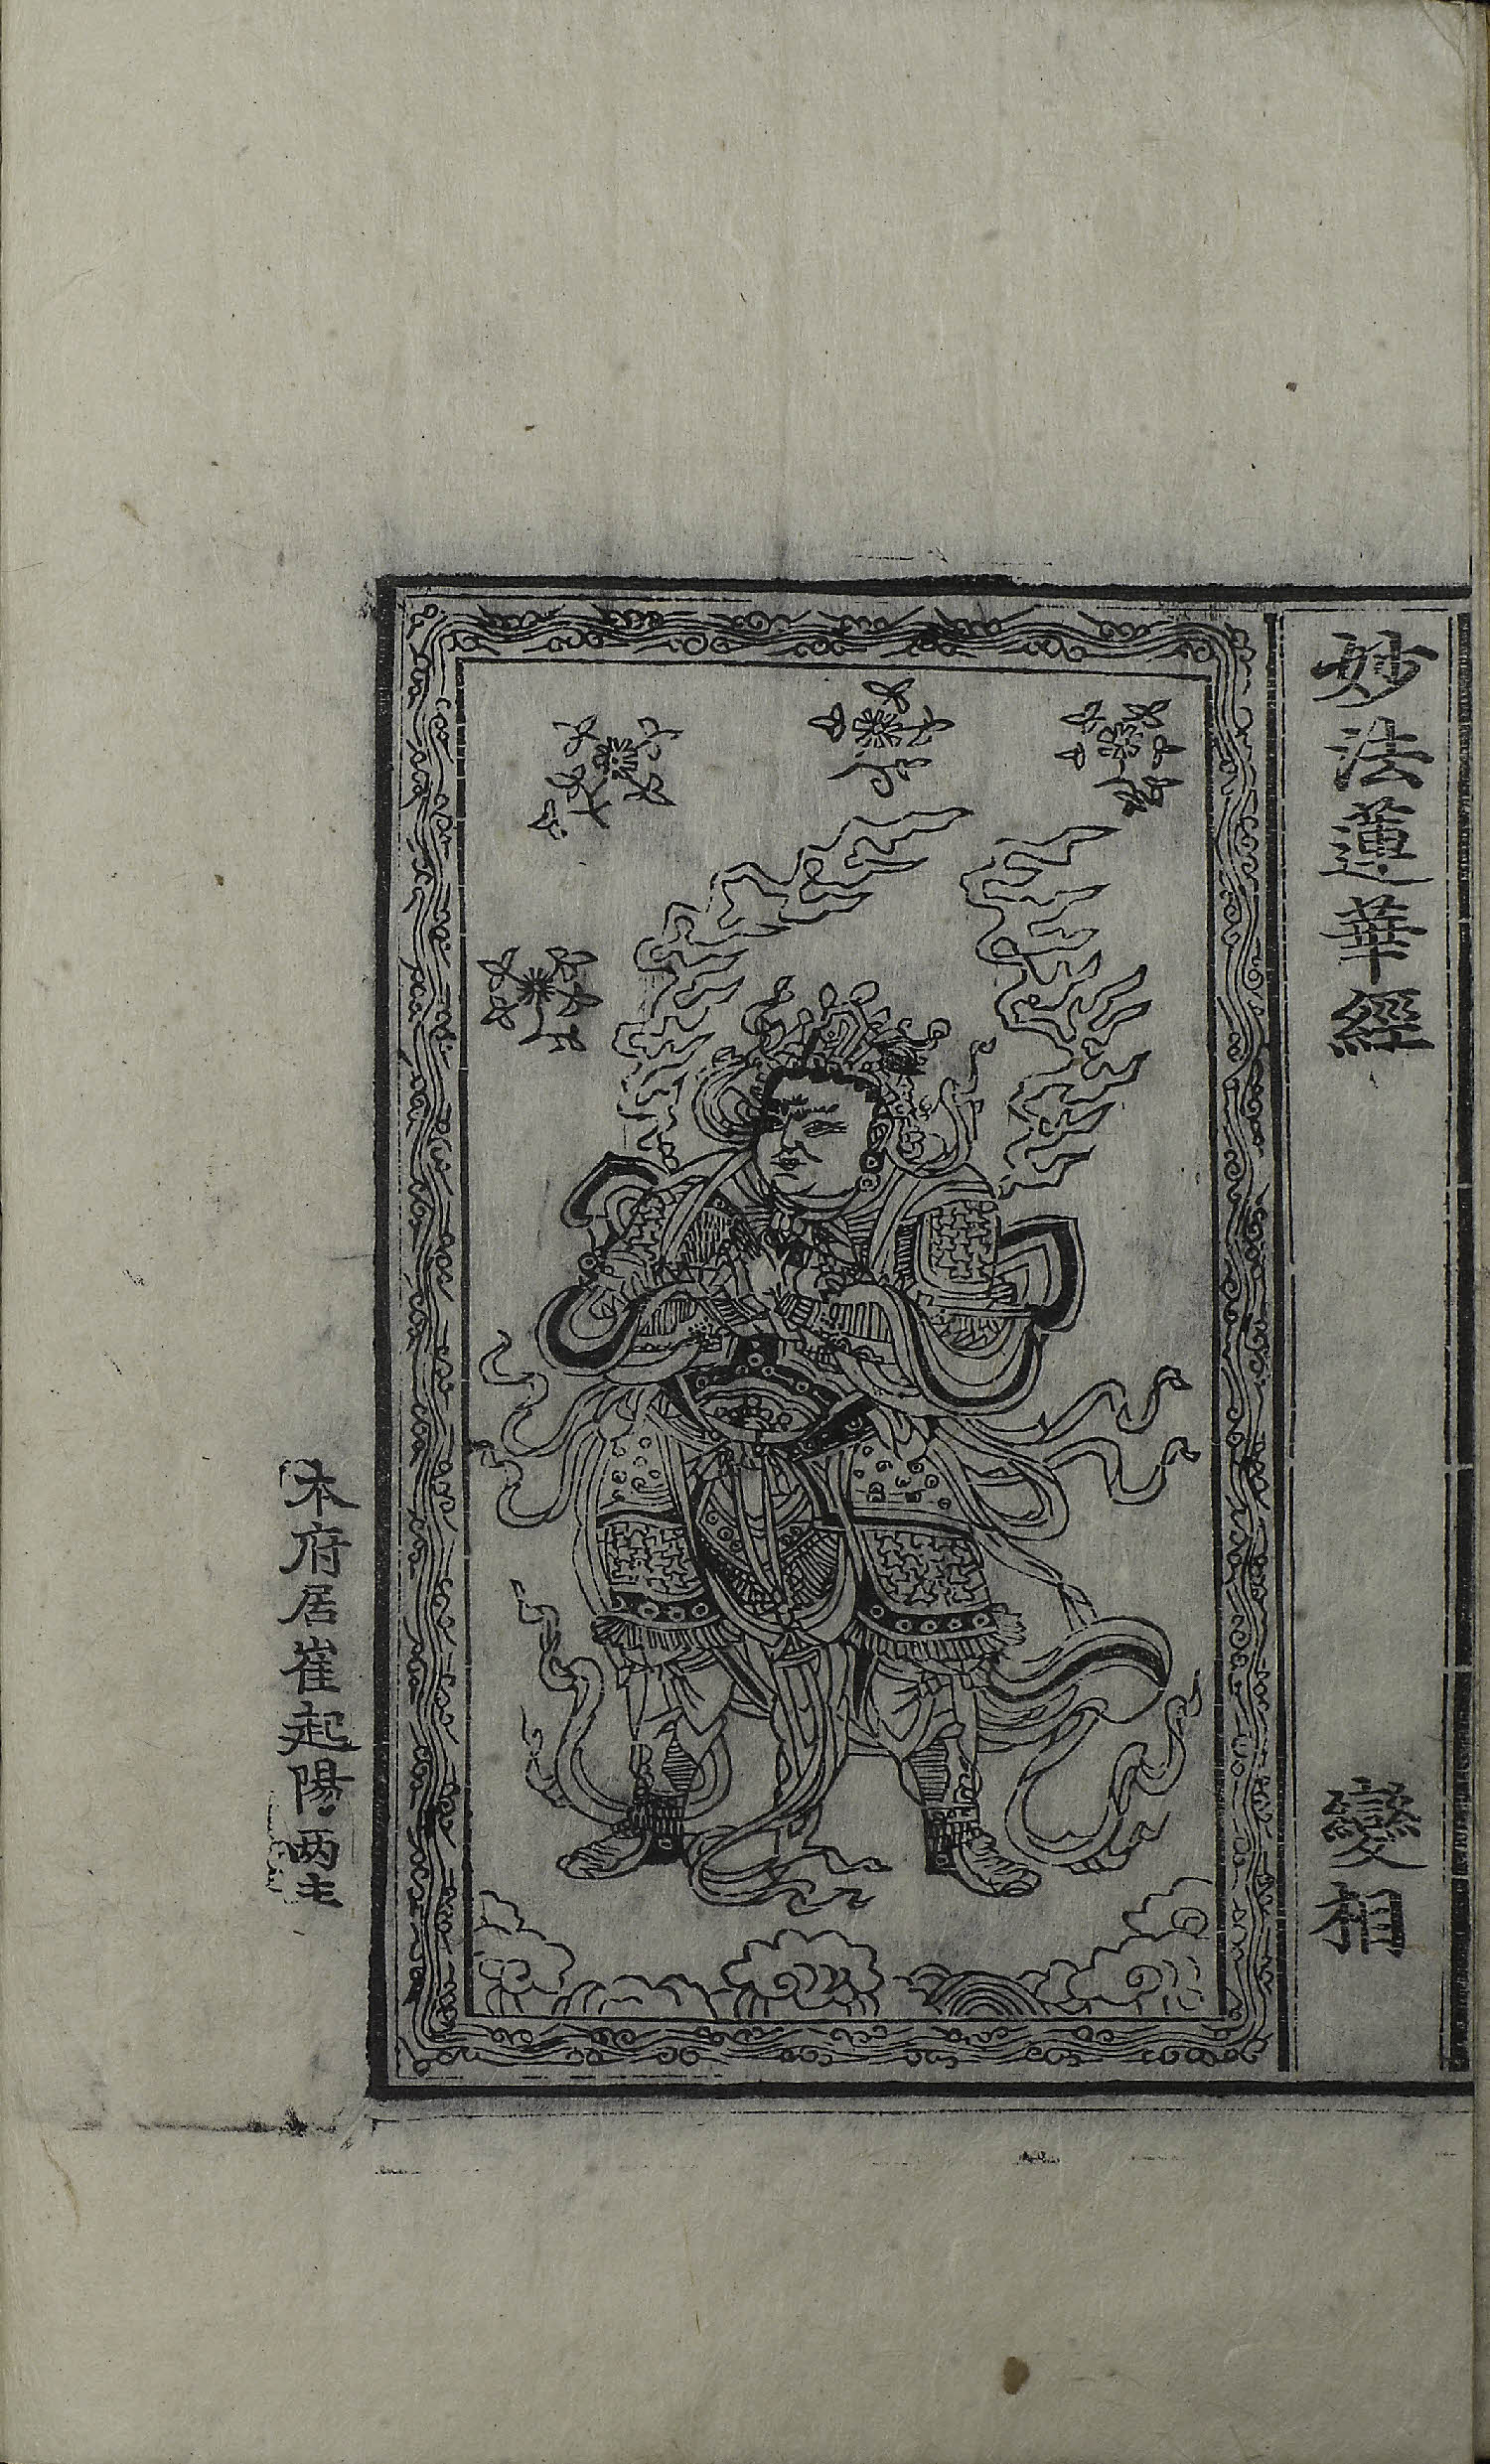 妙法蓮華經 變相
本府居崔起陽兩主